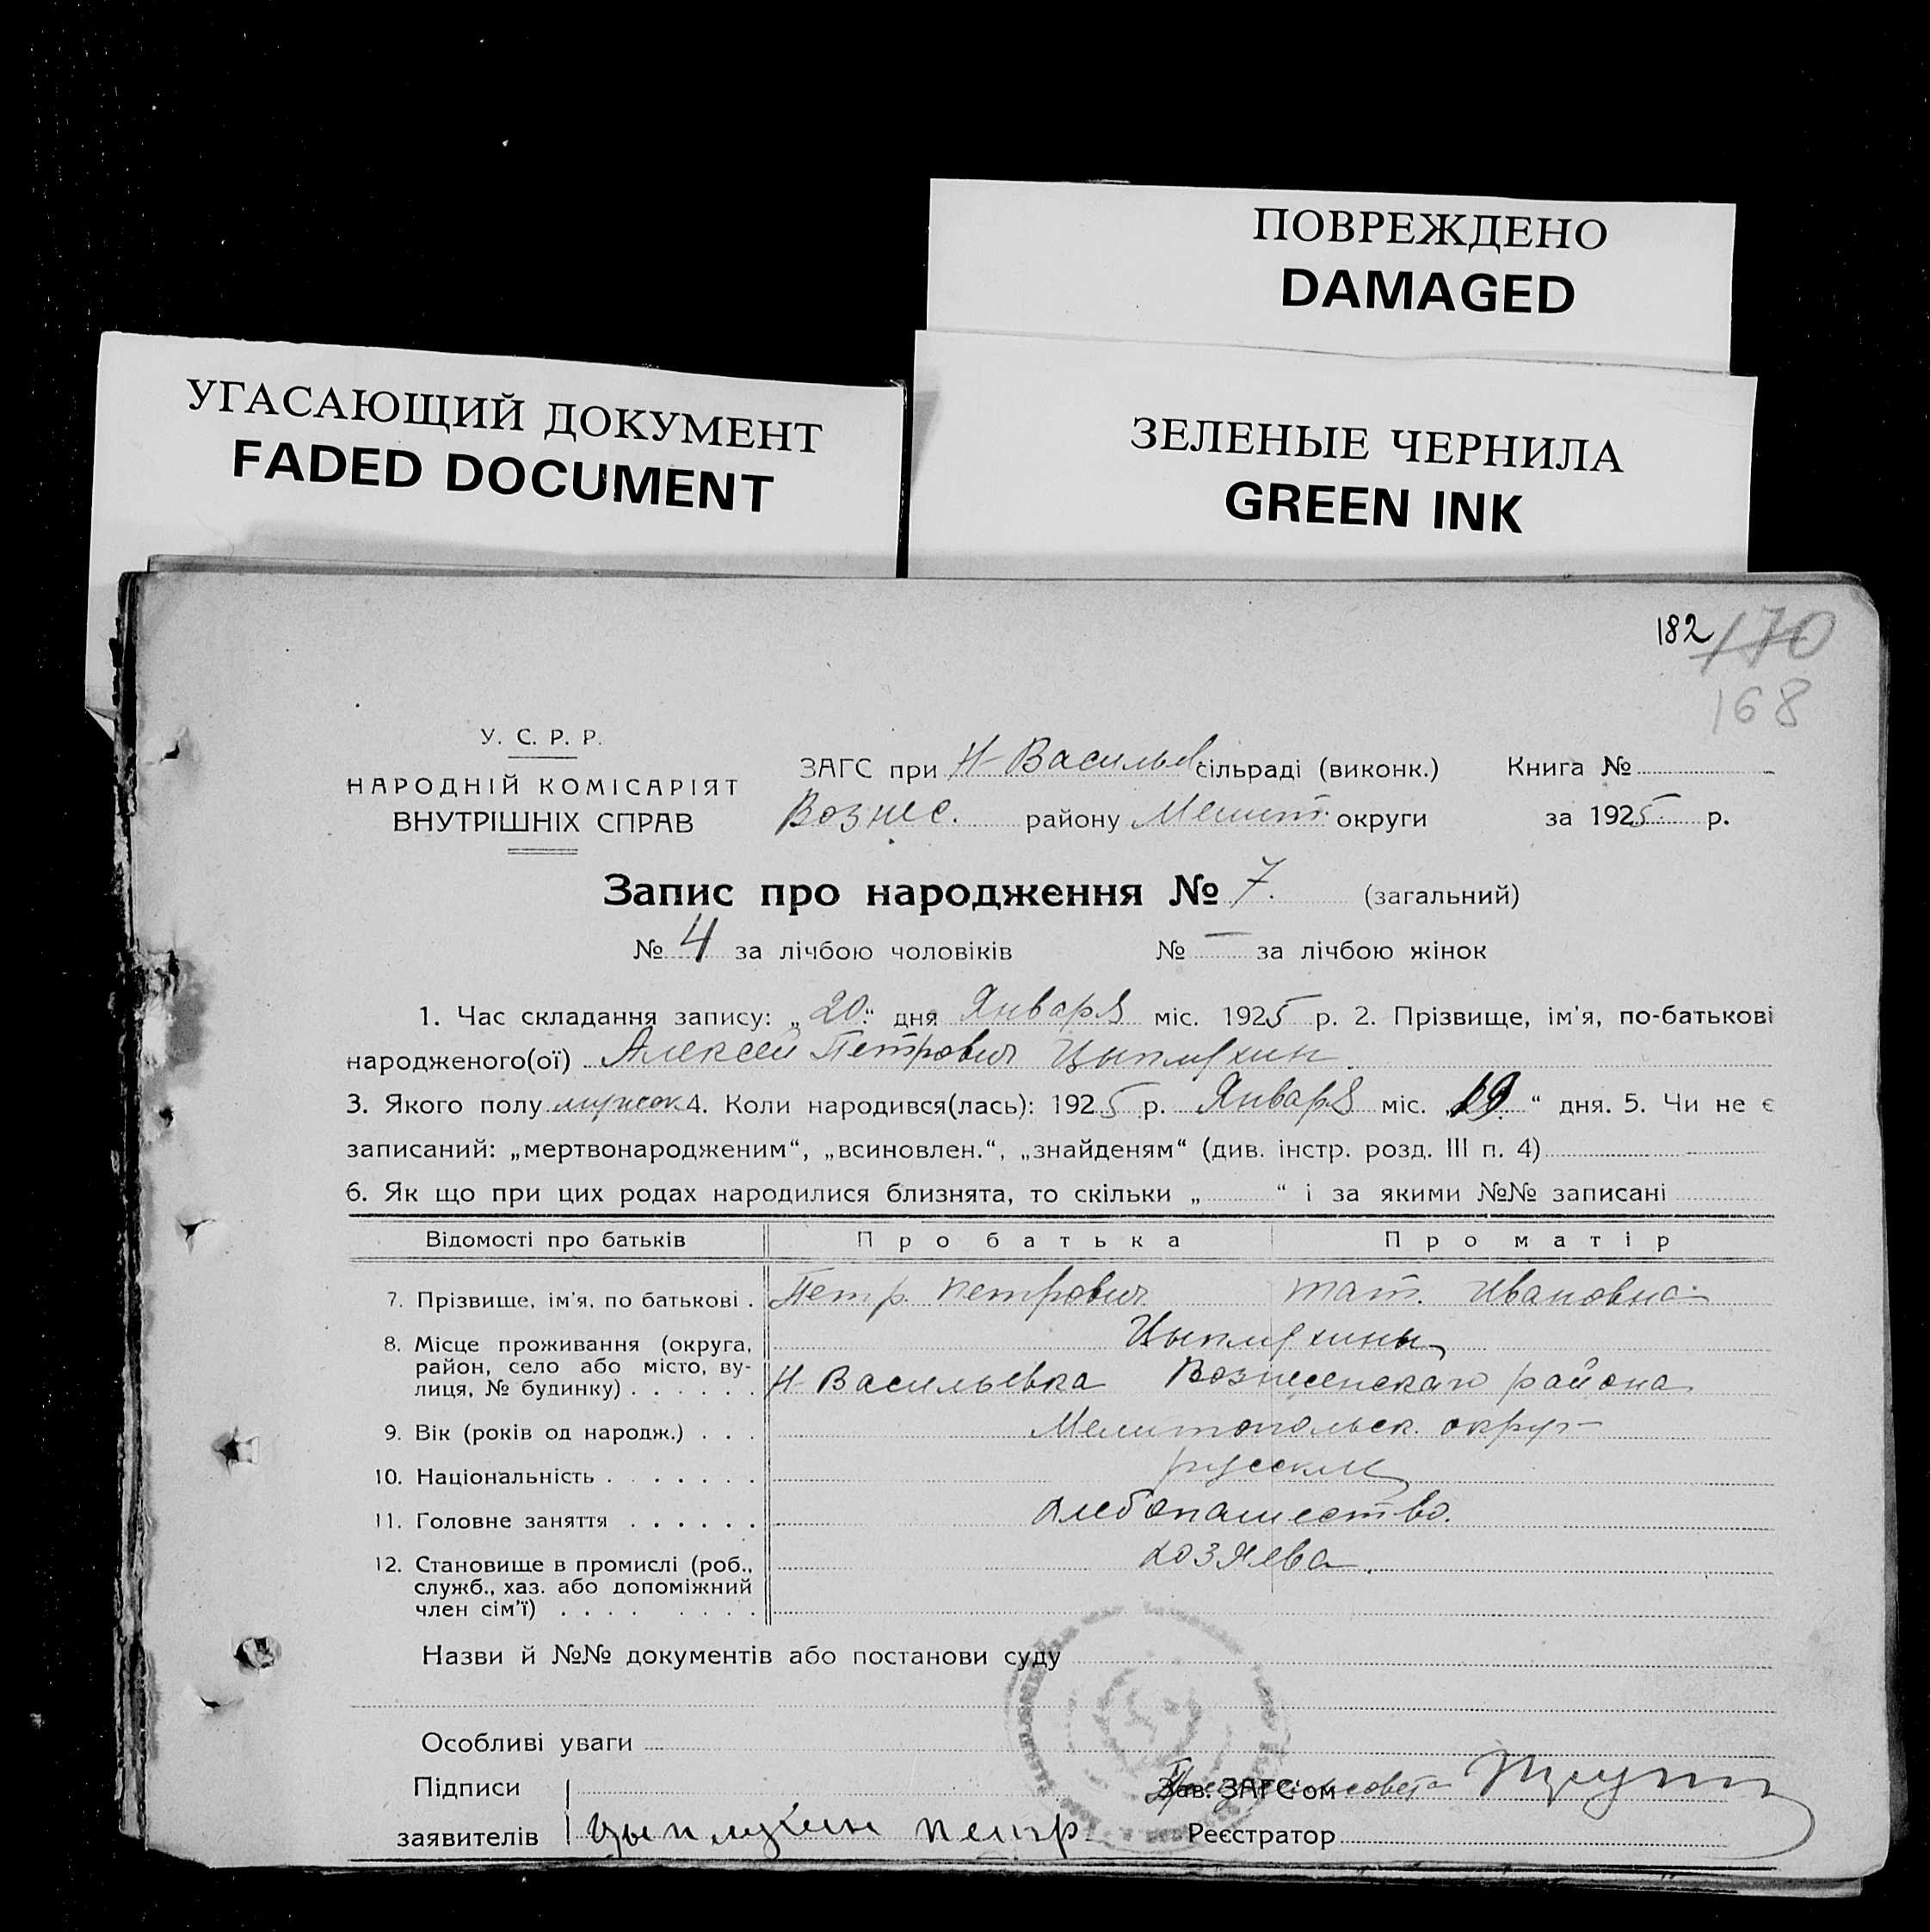 ПОВРЕЖДЕНО
DAMAGED
УГАСАЮЩИЙ ДОКУМЕНТ
FADED DOCUMENT
ЗЕЛЕНЫЕ ЧЕРНИЛА
GREEN INK
182 170
168
У. С. Р. Р.
НАРОДНІЙ КОМІСАРІЯТ
ВНУТРІШНІХ СПРАВ
ЗАГС при Н-Васильев. сільраді (виконк.) Книга №
Вознес. району Мелит. округи за 1925 р.
Запис про народження № 7. (загальний)
№ 4 за лічбою чоловіків № — за лічбою жінок
1. Час складання запису: „20“ дня Января міс. 1925 р. 2. Прізвище, ім'я, по-батькові
народженого(ої) Алексей Петрович Цыплухин
3. Якого полу мужск 4. Коли народився(лась): 1925 р. Января міс. „19“ дня. 5. Чи не є
записаний: „мертвонародженим“, „всиновлен.“, „знайденям“ (див. інстр. розд. III п. 4)
6. Як що при цих родах народилися близнята, то скільки „ “ і за якими №№ записані
Відомості про батьків Про батька Про матір
7. Прізвище, ім'я, по батькові . Петр. Петрович Тат. Ивановна
8. Місце проживання (округа, Цыплухины
район, село або місто, ву-
лиця, № будинку) . . . . . . Н-Васильевка Вознесенскаго района
9. Вік (років од народж.) . . . Мелитопольск. округ
10. Національність . . . . . . . русские
11. Головне заняття . . . . . . хлебопашество.
12. Становище в промислі (роб., хозяева
служб., хаз. або допоміжний
член сім'ї) . . . . . . . .
Назви й №№ документів або постанови суду
Особливі уваги
Підписи Зав. ЗАГС'ом
заявителів Цыплухин Петр. Реєстратор